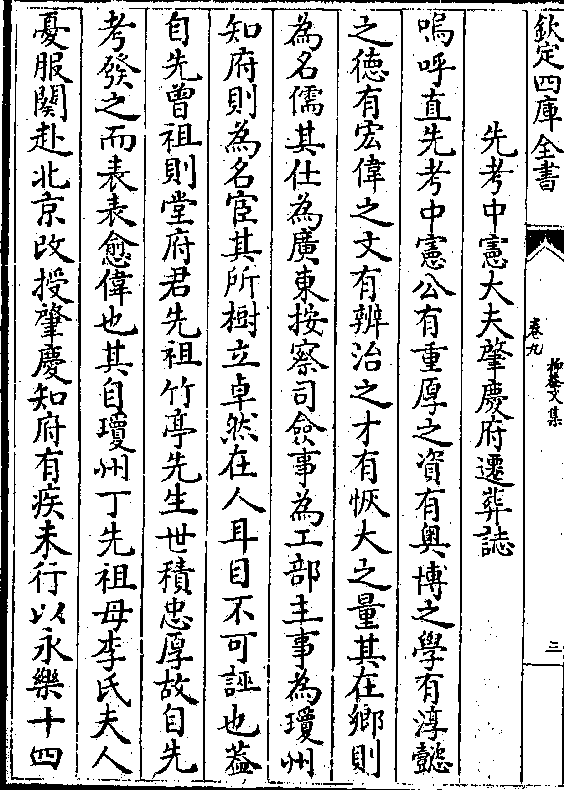 欽定四庫全書
抑菴文集
卷九
三
先考中憲大夫肇慶府遷葬誌
嗚呼直先考中憲公有重厚之資有奥博之學有淳懿
之德有宏偉之文有辨治之才有恢大之量其在鄉則
為名儒其仕為廣東按察司僉事為工部主事為瓊州
知府則為名宦其所樹立卓然在人耳目不可誣也葢
自先曾祖則堂府君先祖竹亭先生世積忠厚故自先
考發之而表表愈偉也其自瓊州丁先祖母李氏夫人
憂服闋赴北京改授肇慶知府有疾未行以永樂十四